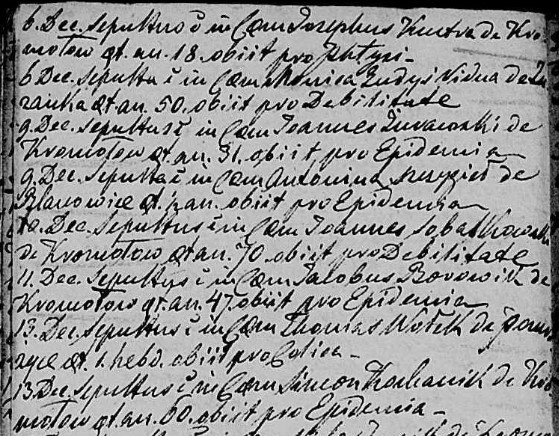 6. Dec. sepultus ē in Cœm Josephus Kustra de Kro-
motow æt. an. 18. obiit pro phtysi-
6 Dec. sepulta ē in Cœm Monica Zudys Vidua de
ranka æt an. 50. obiit pro Debilitate
9. Dec. sepultus ē in Cœm Joannes Zurawski de
Kromotow æt. an. 31. obiit pro Epidemia
9. Dec. sepulta ē in Cœm Antonina de
Blanowice æt. an. obiit pro Epidemia
10. Dec. sepultus ē in Cœm Joannes
de Kromotow æt an. 70. obiit pro Debilitate
11. Dec. sepultus ē in Cœm Jacobus Borowik de
Kromotow æt. an. 47. obiit pro Epidemia
13. Dec. sepultus ē in Cœm Thomas Wołek de
æt. 1. hebd. obiit pro Colica-
13. Dec. sepultus ē in Cœm Simon de Kro
motow æt an. 60. obiit pro Epidemia-